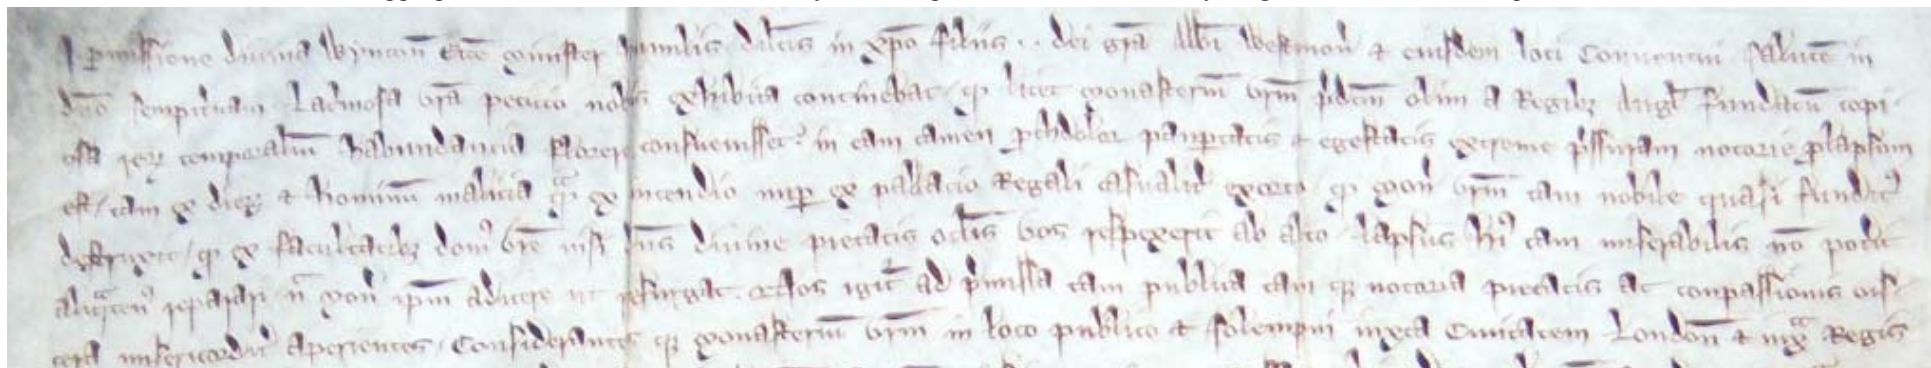 J permissione divina Wynton Ecce minister humilis dilcis in xpo filiis . . dei gra Abbi Westmon & eiusdem loci Conventui salute in
dno sempitnam Lacrimosa vra peticio nobis exhibita continebat / qd licet monasteriu vrm pdcm olim a Regibz Angl fundatu copi
osa rerz temporaliu habundancia florere consuevisset in eam tamen paupertatis & egestatis extreme pssuram notorie plapsum
est / tam ex dierz & hominu malicia qa ex incendio nup ex pallacio Regali casualit exorto qd mon vrm tam nobile quasi fundit
destruxit / qd ex facultatibz dom vre nisi dns divine pietatis oclis vos respexerit ab alto lapsus hi tam miserabilis no potit
aliqaten reparari n mon ipm adicere ut resurgat . Nos igit ad pmissa tam publica tam qz notoria pietatis ac conpassionis vis
cera misericordit aperientes / Considerantes qd monasteriu vrm in loco publico & solempni iuxta Civitatem London & iuxa Regis